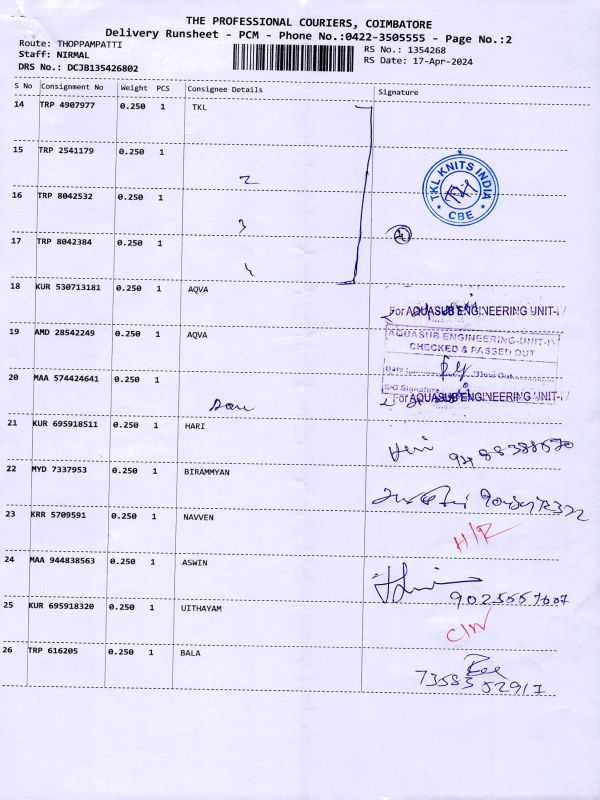 THE PROFESSIONAL COURIERS, COIMBATORE
Delivery Runsheet - PCM - Phone No.:0422-3505555 - Page No.:2
Route: THOPPAMPATTI
RS No.: 1354268
Staff: NIRMAL
RS Date: 17-Apr-2024
DRS No.: DCJB135426802
S No Consignment No Weight PCS Consignee Details Signature
14 TRP 4907977 0.250 1 TKL
15 TRP 2541179 0.250 1
2
TKL KNITS INDIA
CBE
16 TRP 8042532 0.250 1
3
17 TRP 8042384 0.250 1
4
18 KUR 530713181 0.250 1 AQVA
For AQUASUB ENGINEERING UNIT-
19 AMD 28542249 0.250 1 AQVA
AQUASUB ENGINEERING-UNIT-IV
CHECKED & PASSED OUT
Date : Time Out
S/G Signature
20 MAA 574424641 0.250 1
For AQUASUB ENGINEERING UNIT-
21 KUR 695918511 0.250 1 HARI
22 MYD 7337953 0.250 1 BIRAMMYAN
23 KRR 5709591 0.250 1 NAVVEN
H/R
24 MAA 944838563 0.250 1 ASWIN
9025557607
25 KUR 695918320 0.250 1 UITHAYAM
26 TRP 616205 0.250 1 BALA
73583 52917